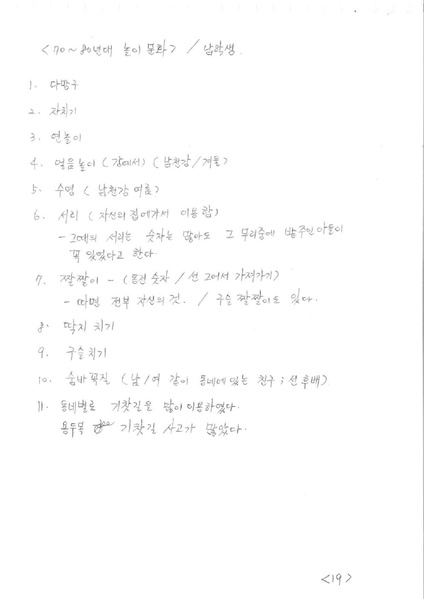 <70~80년대 놀이 문화> / 남학생.
1. 다방구
2. 자치기
3. 연놀이
4. 얼음놀이 (강에서) (남천강/겨울)
5. 수영 (남천강 여름)
6. 서리 (자신의 집에가서 이용함)
- 그때의 서리는 숫자는 많아도 그 무리중에 밭주인아들이
꼭 있었다고 한다.
7. 짤짤이 - (동전 숫자 / 선 그어서 가져가기)
- 따면 전부 자신의 것. / 구슬 짤짤이도 있다.
8. 딱지 치기
9. 구슬치기
10. 숨바꼭질 (남/여 같이 동네에 있는 친구; 선후배)
11. 동네별로 기찻길을 많이 이용하였다.
용두목 기찻길 사고가 많았다.
<19>